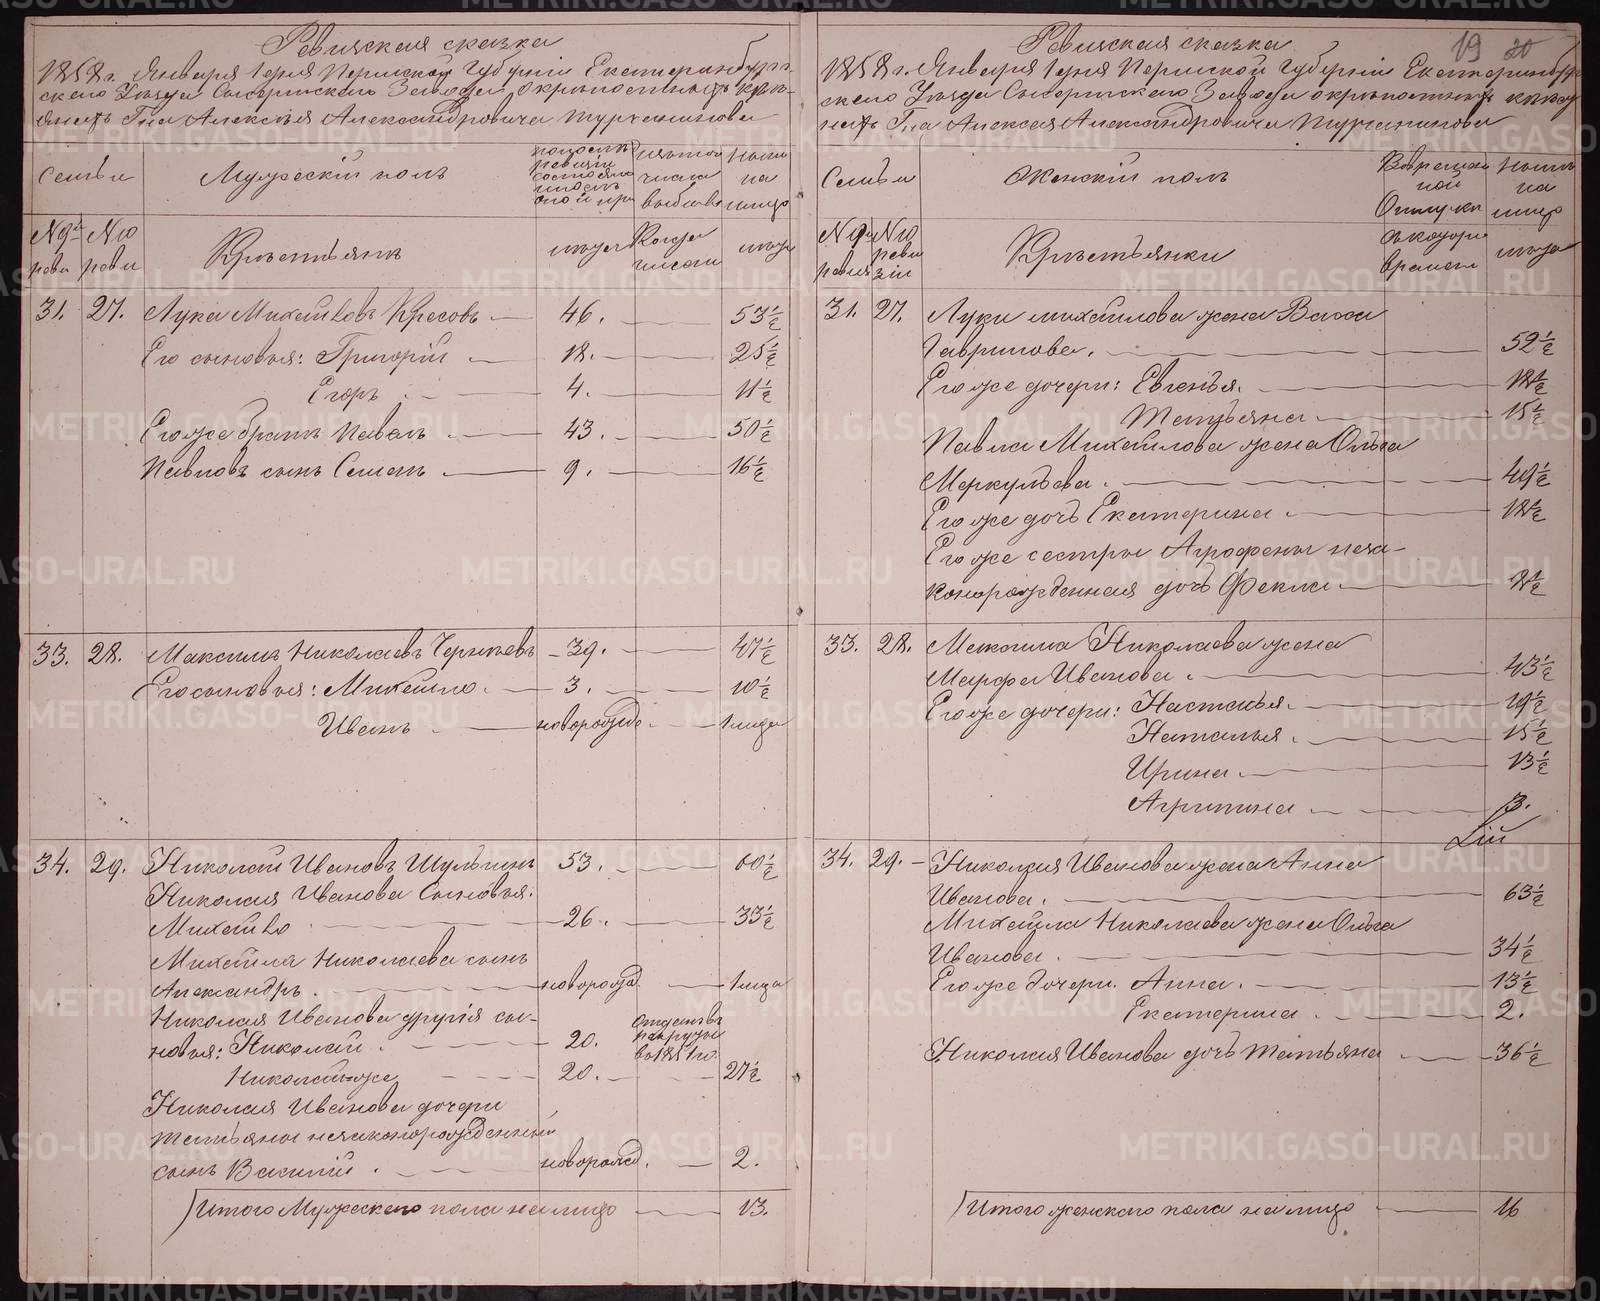 Ревизская сказка
1858 г. Января 1 дня Пермской Губерніи Екатеринбург-
скаго Уѣзда Сысертскаго Завода о крѣпостныхъ крес-
янахъ Гна Алексѣя Александровича Турчанинова
Семьи
Мужескій полъ
Крестьянъ
31. 27. Лука Михайловъ Кресовъ 46. 53½
Его сыновья: Григорій 18. 25½
Егоръ 4. 11½
Его же братъ Павелъ 43. 50½
Павловъ сынъ Семенъ 9. 16½
33. 28. Максимъ Николаевъ 39. 47½
Его сыновья: Михайло 3. 10½
Иванъ новорожд. 1 года
34. 29. Николай Ивановъ Шульгинъ 53. 60½
Николая Иванова Сыновья:
Михайло 26. 33½
Михайла Николаева сынъ
Александръ новорожд. 1 года
Николая Иванова другія сы-
новья: Николай 20.
Николай же 20. 27½
Николая Иванова дочери
Татьяны незаконорожденный
сынъ Василій новорожд. 2.
Итого Мужескаго пола на лицо 13.
19 20
Ревизская сказка
1858 г. Января 1 дня Пермской Губерніи Екатеринбург
скаго Уѣзда Сысертскаго Завода о крѣпостныхъ
Гна Алексея Александровича Турчанинова
Семьи
Женскій полъ
Крестьянки
31. 27. Луки Михайлова жена Васса
Гаврилова. 52½
Его же дочери: Евгенья. 18½
Татьяна 15½
Павла Михайлова жена Ольга
Меркульева. 49½
Его же дочь Екатерина 18½
Его же сестры Агрофены неза-
конорожденная дочь Фекла
33. 28. Максима Николаева жена
Марфа Иванова. 43½
Его же дочери: Настасья. 19½
Наталья. 15½
Ирина. 13½
Агрипина 3.
34. 29. Николая Иванова жена Анна
Иванова. 63½
Михайла Николаева жена Ольга
Иванова. 34½
Его же дочери. Анна. 13½
Екатерина. 2.
Николая Иванова дочь Татьяна 36½
Итого женскаго пола на лицо 16
METRIKI.GASO-URAL.RU